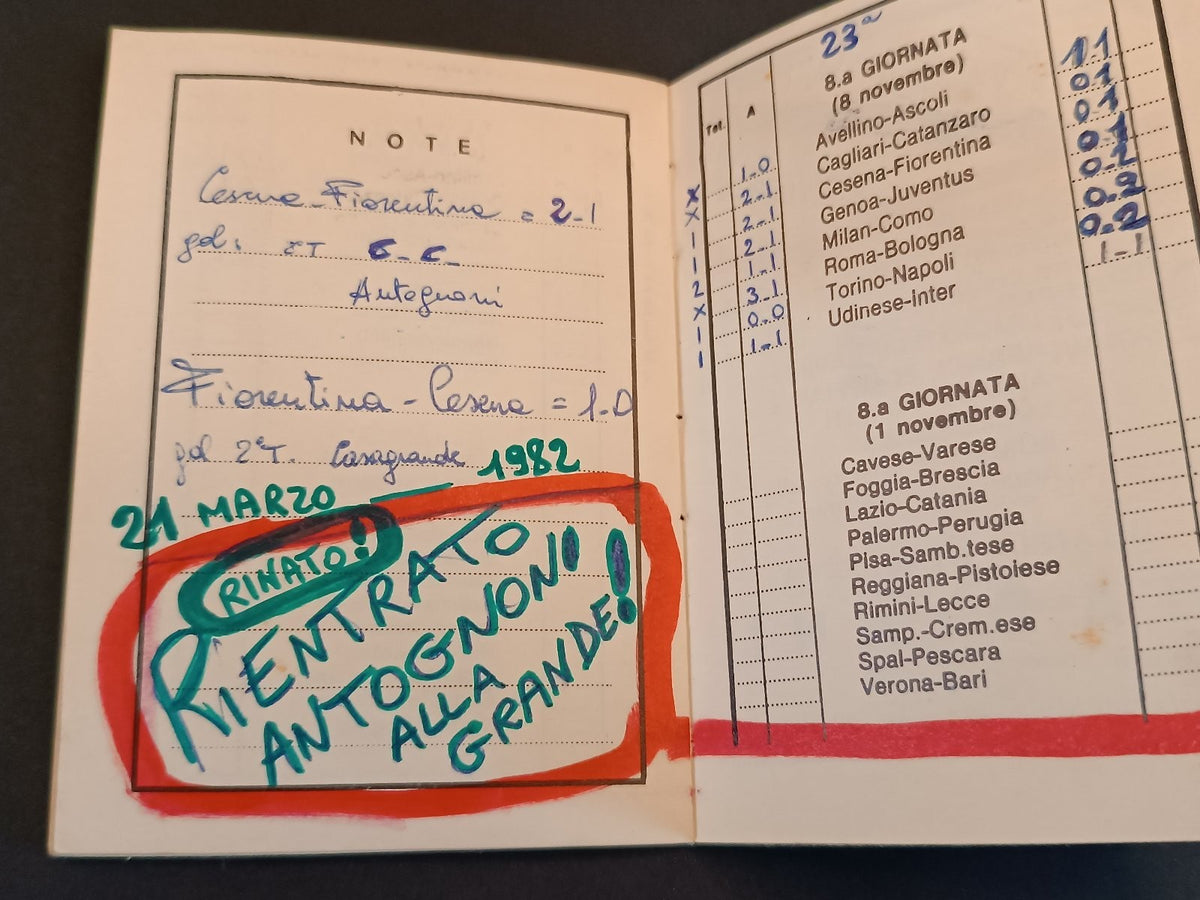 NOTE
Cesena-Fiorentina = 2-1
gol:
Antognoni
Fiorentina - Cesena = 1-0
gol 2°T. Casagrande
21 MARZO — 1982
RINATO!
RIENTRATO
ANTOGNONI!
ALLA
GRANDE!
23ª
8.a GIORNATA
(8 novembre)
Tot. A
X 1-0 Avellino-Ascoli 1-1
X 2-1 Cagliari-Catanzaro 0-1
1 2-1 Cesena-Fiorentina 0-1
1 2-1 Genoa-Juventus 0-1
2 1-1 Milan-Como 0-2
X 3-1 Roma-Bologna 0-2
1 0-0 Torino-Napoli 0-2
1 1-1 Udinese-Inter 1-1
8.a GIORNATA
(1 novembre)
Cavese-Varese
Foggia-Brescia
Lazio-Catania
Palermo-Perugia
Pisa-Samb.tese
Reggiana-Pistoiese
Rimini-Lecce
Samp.-Crem.ese
Spal-Pescara
Verona-Bari